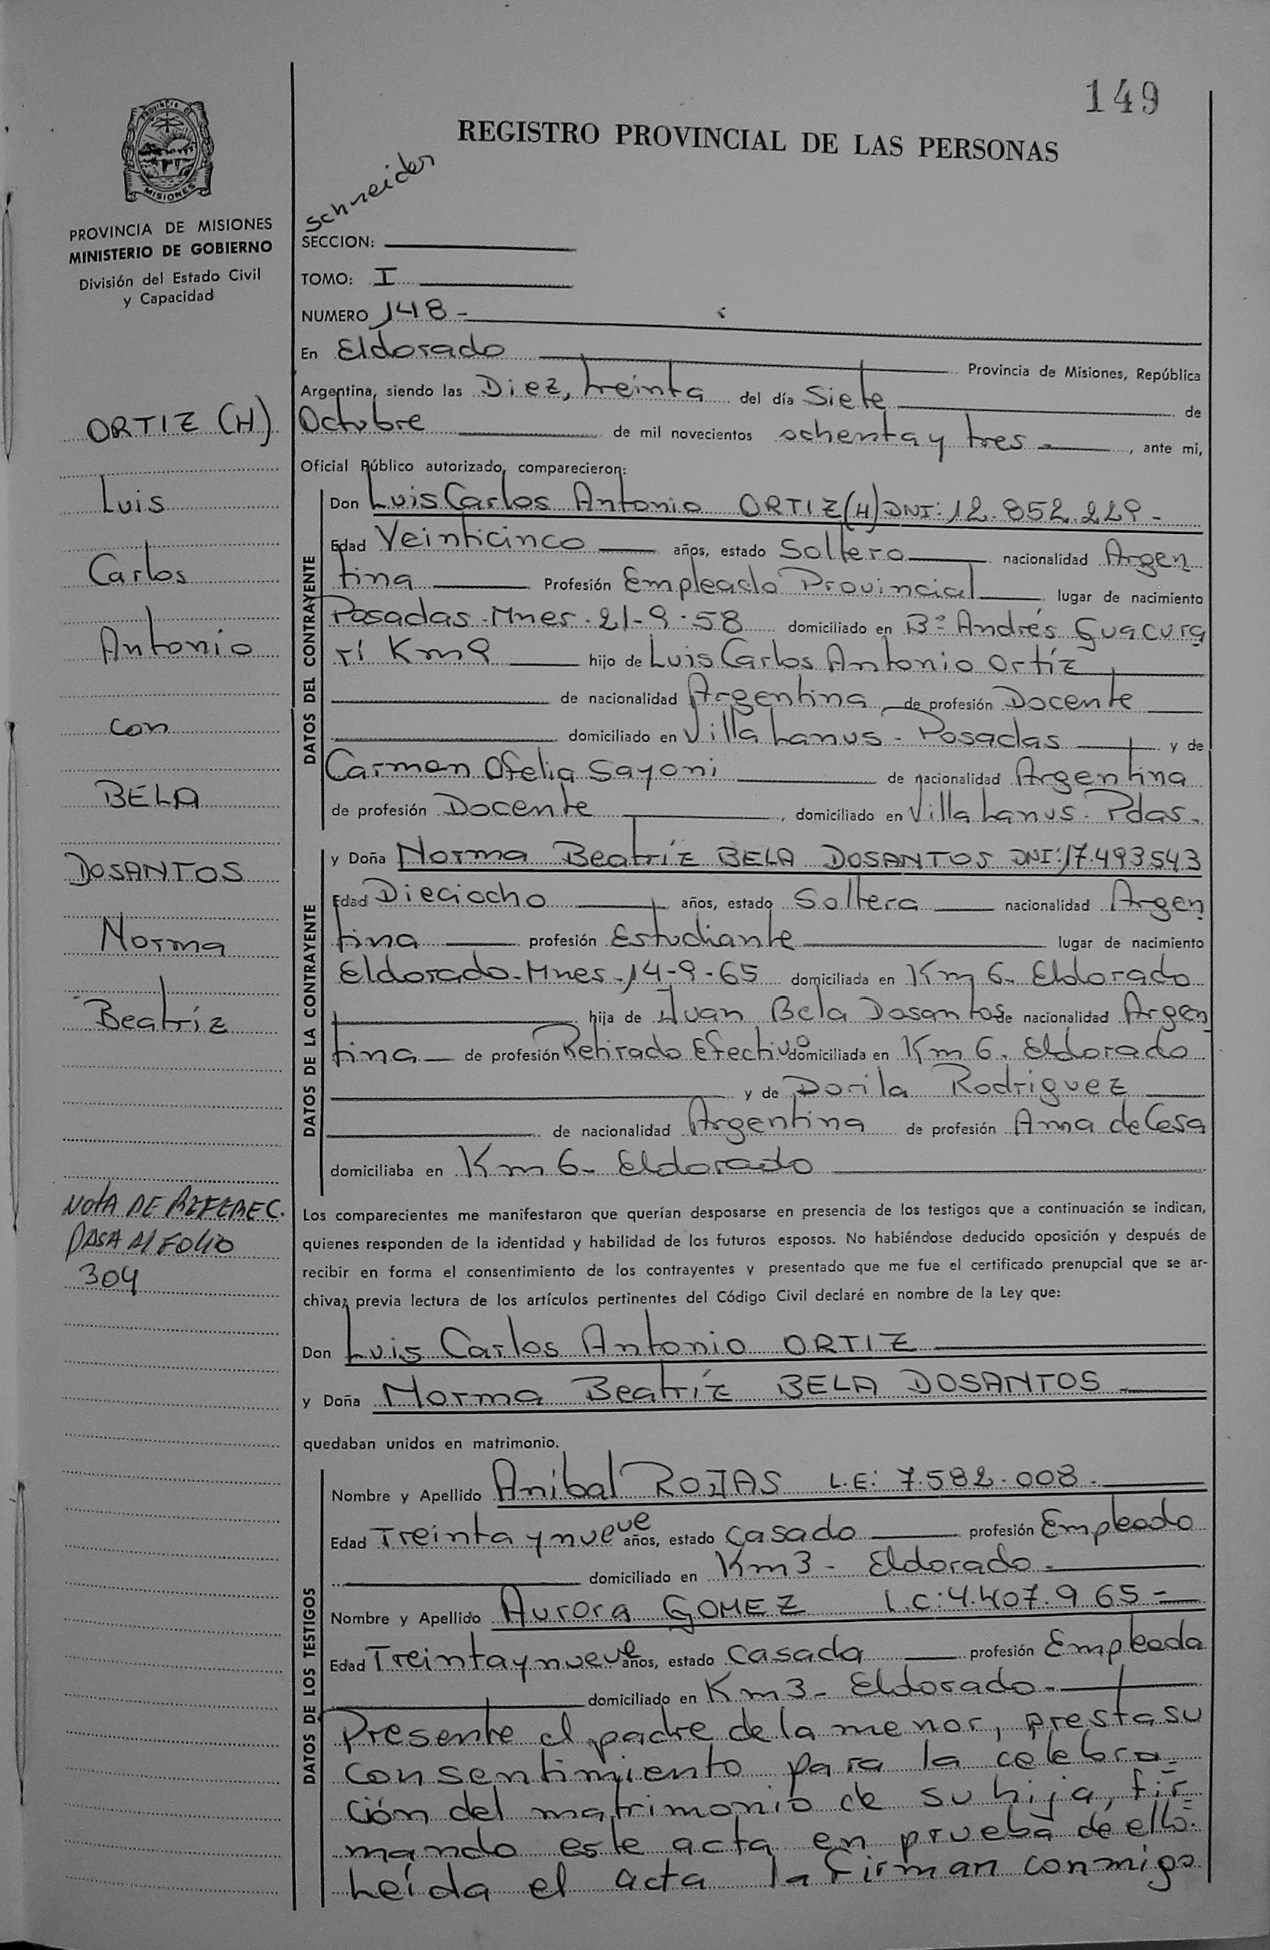 149
REGISTRO PROVINCIAL DE LAS PERSONAS
PROVINCIA DE
MISIONES
PROVINCIA DE MISIONES
MINISTERIO DE GOBIERNO
División del Estado Civil
y Capacidad
Schneider
SECCION:
TOMO: I
NUMERO 148-
En Eldorado Provincia de Misiones, República
Argentina, siendo las Diez, treinta del día Siete de
Octubre de mil novecientos ochenta y tres - , ante mi,
Oficial Público autorizado, comparecieron:
ORTIZ (H)
Luis
Carlos
Antonio
con
BELA
DOSANTOS
Norma
Beatríz
NOTA DE REFEREC.
PASA Al FOLIO
304
DATOS DEL CONTRAYENTE
Don Luis Carlos Antonio ORTIZ (H) DNI: 12.852.229-
Edad Veinticinco años, estado Soltero nacionalidad Argen
tina Profesión Empleado Provincial lugar de nacimiento
Posadas-Mnes-21-9-58 domiciliado en Bº Andrés Guacura
rí Km 9 hijo de Luis Carlos Antonio Ortíz
de nacionalidad Argentina de profesión Docente
domiciliado en Villa Lanus - Posadas y de
Carmen Ofelia Sayoni de nacionalidad Argentina
de profesión Docente , domiciliado en Villa Lanus - Pdas.
DATOS DE LA CONTRAYENTE
y Doña Norma Beatríz BELA DOSANTOS DNI: 17.493543
Edad Dieciocho años, estado Soltera nacionalidad Argen
tina profesión Estudiante lugar de nacimiento
Eldorado-Mnes-14-9-65 domiciliada en Km 6- Eldorado
hija de Juan Bela Dosantos de nacionalidad Argen
tina de profesión Retirado Efectivo domiciliada en Km 6. Eldorado
y de Dorila Rodriguez
de nacionalidad Argentina de profesión Ama de Casa
domiciliaba en Km 6- Eldorado
Los comparecientes me manifestaron que querían desposarse en presencia de los testigos que a continuación se indican,
quienes responden de la identidad y habilidad de los futuros esposos. No habiéndose deducido oposición y después de
recibir en forma el consentimiento de los contrayentes y presentado que me fue el certificado prenupcial que se ar-
chiva; previa lectura de los artículos pertinentes del Código Civil declaré en nombre de la Ley que:
Don Luis Carlos Antonio ORTIZ
y Doña Norma Beatríz BELA DOSANTOS
quedaban unidos en matrimonio.
DATOS DE LOS TESTIGOS
Nombre y Apellido Anibal ROJAS L.E: 7.582.008.
Edad Treinta y nueve años, estado casado profesión Empleado
domiciliado en Km 3 - Eldorado -
Nombre y Apellido Aurora GOMEZ L.C: 4.407.965-
Edad Treinta y nueve años, estado casada profesión Empleada
domiciliado en Km 3- Eldorado-
Presente el padre de la menor, presta su
consentimiento para la celebra-
ción del matrimonio de su hija, fir=
mando este acta en prueba de ello.
Leída el acta la firman conmigo